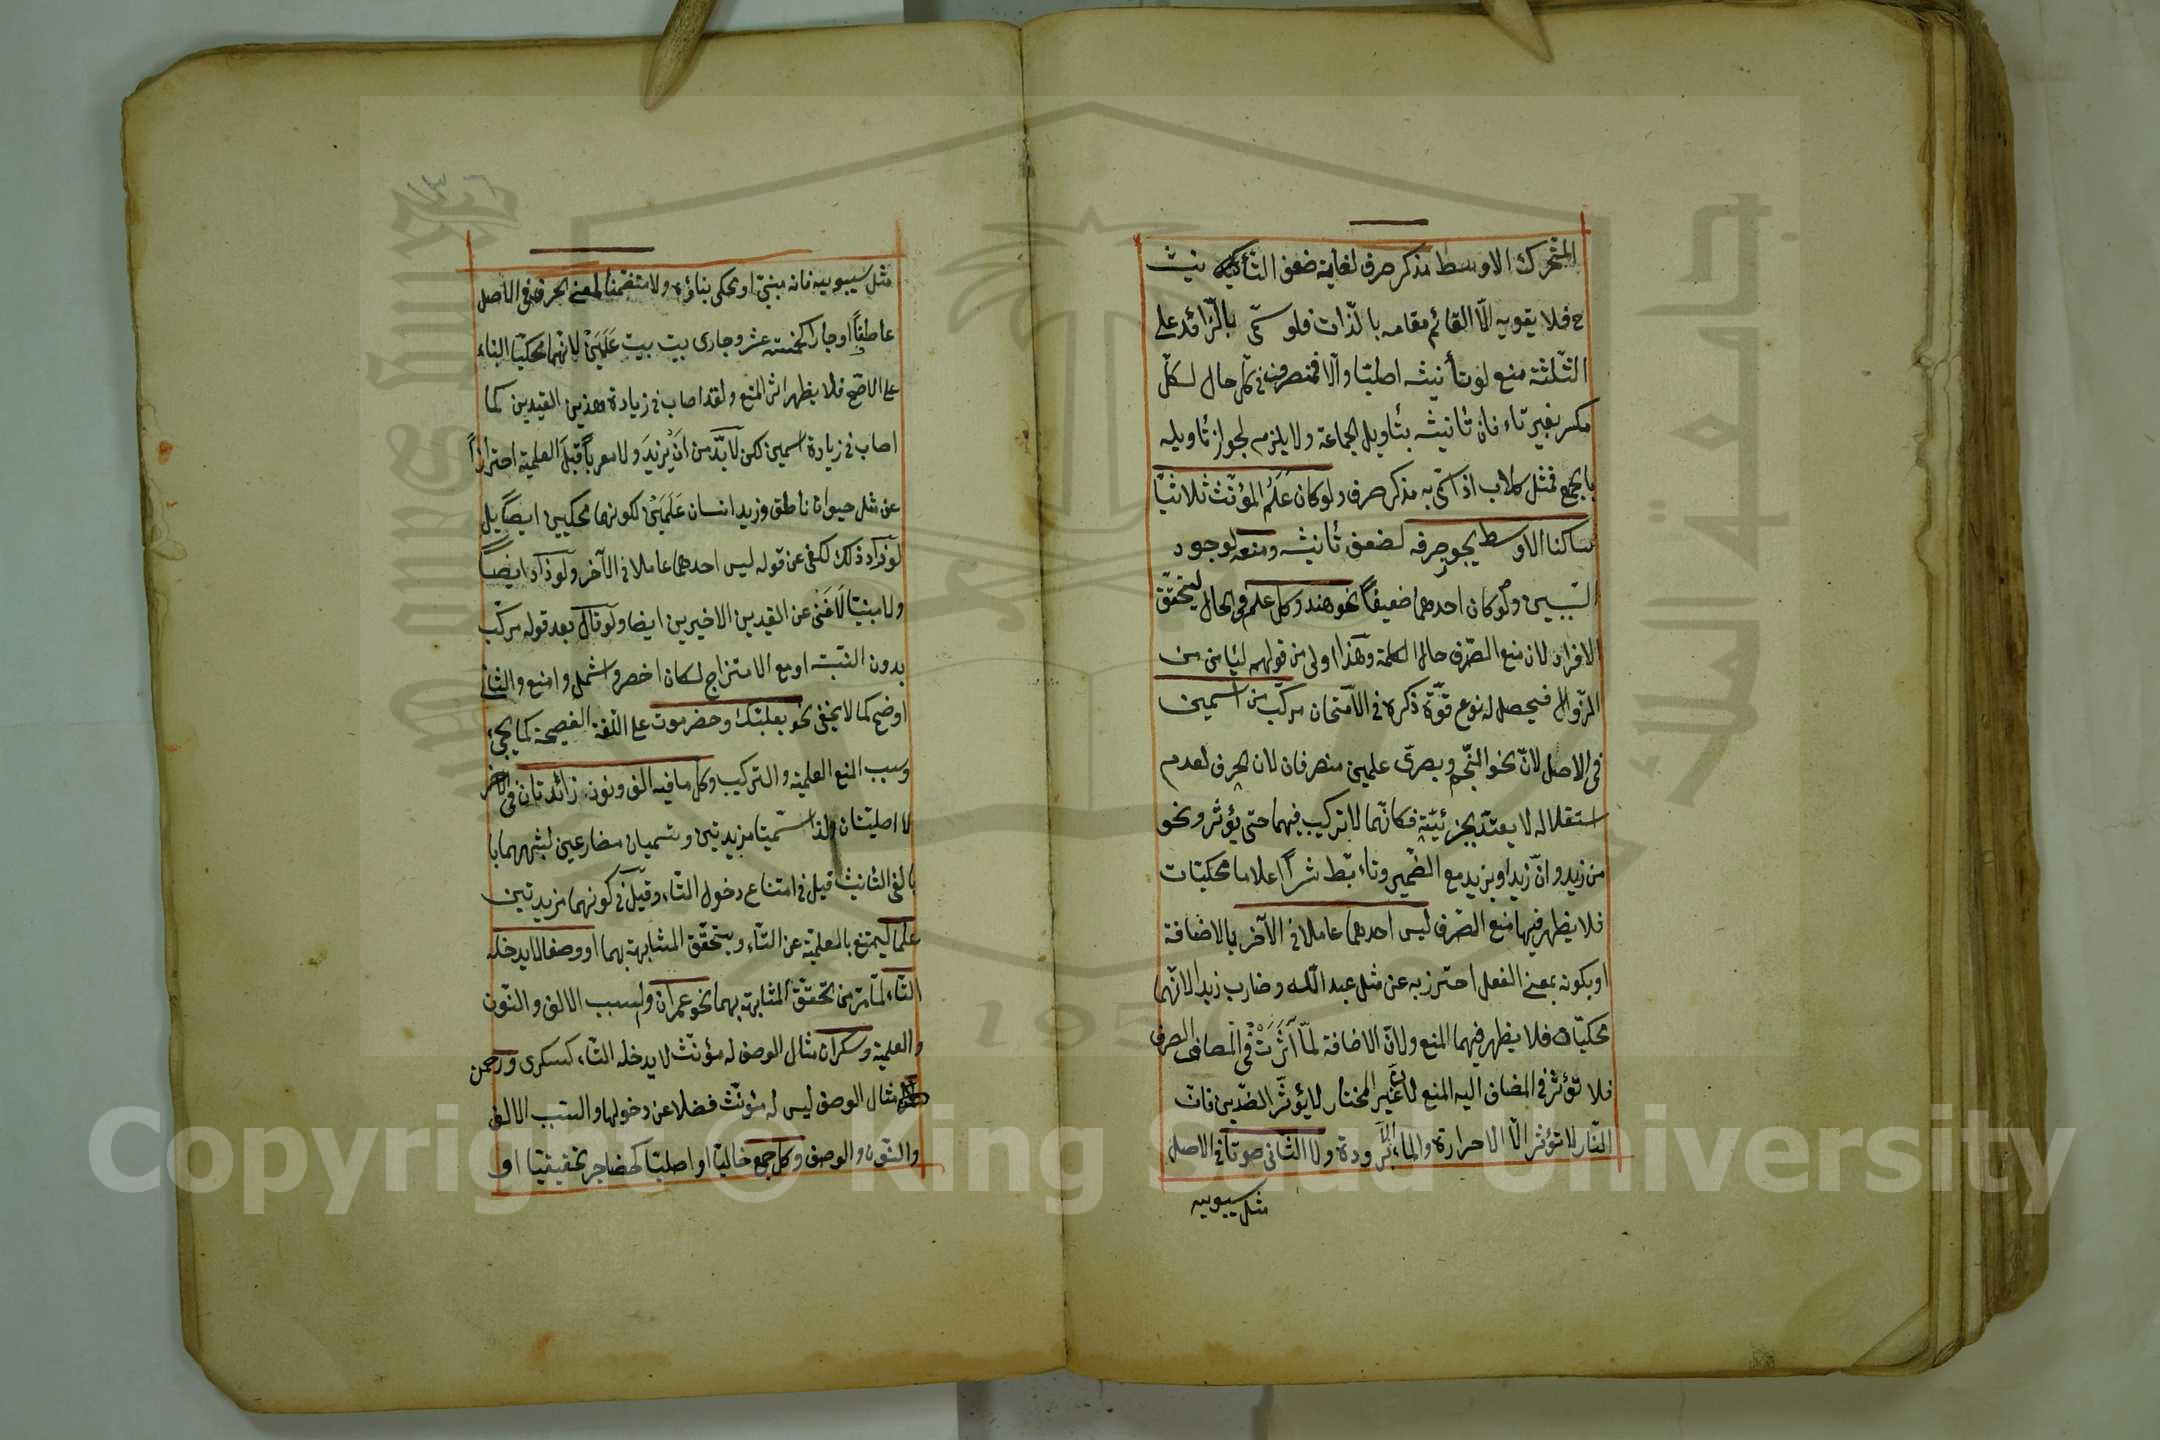 المتحرك الاوسط مذكر صرف لغاية ضعف التأنيث
ح فلا يقويه الّا القائم مقامه بالذات فلو سمّى بالزّائد على
الثلثة منع لو تأنيثه اصليّا والّا فمنصرف فى كلّ حال لكلّ
مكسر بغير تاء فان تأنيثه بتأويل الجماعة ولا يلزم لجواز تأويله
بالجمع فمثل كلاب اذا سمّى به مذكر صرف ولو كان عَلَمُ المؤنّث ثلاثيّا
ساكنا الاوسط يجوز صرفه لضعف تأنيثه ومنعه لوجود
السّببين ولو كان احدهما ضعيفًا نحو هند وكل علم فى الحال ليتحقّق
الافراد لان منع الصّرف حال الكلمة وهذا اولى من قولهم ليأمن من
الزّوال فيحصل له نوع قوّة ذكره فى الامتحان مركّب من اسمين
فى الاصل لانّ نحو النّجم وبصرىّ علمين منصرفان لان الحرف لعدم
استقلاله لا يعتدّ بجزئيّته فكانّهما لا تركيب فيهما حتى يؤثر ونحو
من زيد وانّ زيدا وبزيد مع الضّمير وتابّط شرًّا اعلاما محكيّات
فلا يظهر فيها منع الصّرف ليس احدهما عاملا فى الآخر بالاضافة
او بكونه بمعنى الفعل احترز به عن مثل عبد اللّه وضارب زيدا لانّهما
محكيّان فلا يظهر فيهما المنع ولانّ الاضافة لمّا أثّرَتْ فى المضاف الصرف
فلا تؤثر فى المضاف اليه المنع لانّ غير المختار لا يؤثّر الضّدين فانّ
النّار لا تؤثر الّا الاحرارة والماء الّا البرودة ولا الثانى صوتا فى الاصل
مثل سيبويه
مثل سيبويه فانه مبنىّ او يحكى بناؤه ولا متضمّنا لمعنى الحرف فى الاصل
عاطفًا او جارا كخمسة عشر وجارى بيت بيت عَلَمَيْن لانهما محكيّا البناء
على الاصّح فلا يظهر اثر المنع ولقد اصاب فى زيادة هذين القيدين كما
اصاب فى زيادة اسمين لكن لا بدّ من انْ يزيد ولا معربًا قبل العلمية احترازًا
عن مثل حيوان ناطق وزيد انسان عَلَمَيْن لكونهما محكيين ايضًا بل
لو زاد ذلك لكفى عن قوله ليس احدهما عاملا فى الآخر ولو زاد ايضًا
ولا مبنيّا لاَغنى عن القيدين الاخيرين ايضا ولو قال بعد قوله مركّب
بدون النسبة او مع الامتزاج لكان اخصر واشمل وامنع والثانى
اوضح كما لا يخفى نحو بعلبكّ وحضرموت على اللّغة الفصيحة كما يجئ
وسبب المنع العلمية والتركيب وكل ما فيه الف ونون زائدتان فى الآخر
لا اصليّتان ولذا سمّيتا مزيدتين وتسميان مضارعين لشبههما با
بالفى التانيث قيل فى امتناع دخول التّاء وقيل فى كونهما مزيدتين
علما ليمتنع بالعلميّة عن التّاء ويتحقّق المشابهة بهما او وصفا لا يدخله
التّاء لما مرّ من تحقّق المشابهة بهما نحو عمران والسبب الالف والنّون
والعلمية وسكران مثال الوصف له مؤنّث لا يدخله التّاء كسكرى ورحمن
مثال الوصف ليس له مؤنّث فضلا عن دخولها والسّبب الالف
والنّون والوصف وكل جمع حاليّا او اصليّا كحضاجر تحقيقيّا او
Copyright © King Saud University
King Saud University
جامعة الملك سعود
1957